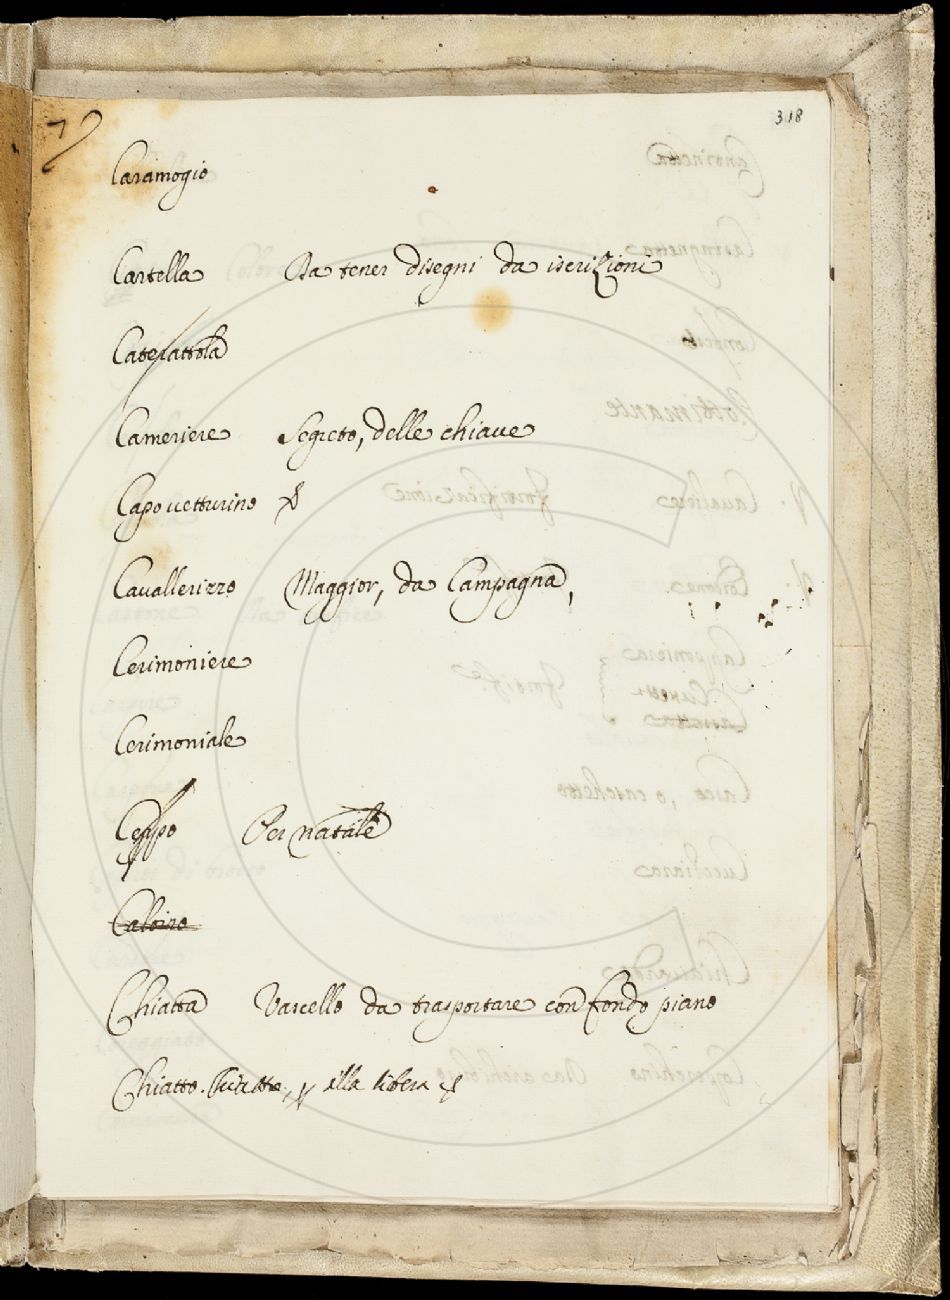 79
318
Caramogio
Cartella Da tener disegni da iscrizioni
Caterattola
Cameriere Segreto, delle chiave
Capo vetturino
Cavallerizzo Maggior, da Campagna,
Cerimoniere
Cerimoniale
Ceppo Per natale
Chiatta Vascello da trasportare con fondo piano
Chiatto. alla libera